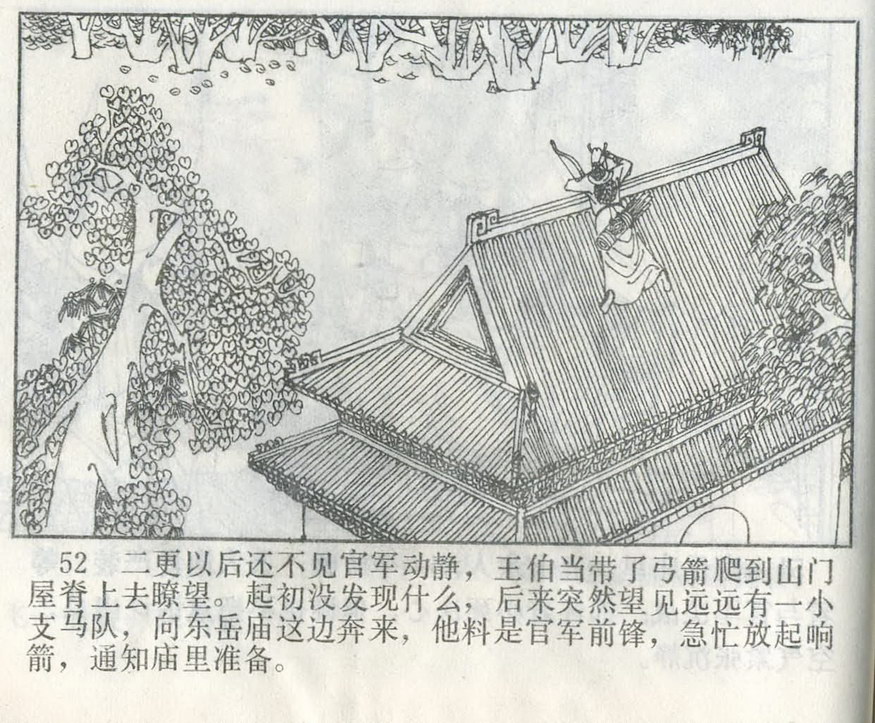 52 二更以后还不见官军动静，王伯当带了弓箭爬到山门
屋脊上去瞭望。起初没发现什么，后来突然望见远远有一小
支马队，向东岳庙这边奔来，他料是官军前锋，急忙放起响
箭，通知庙里准备。